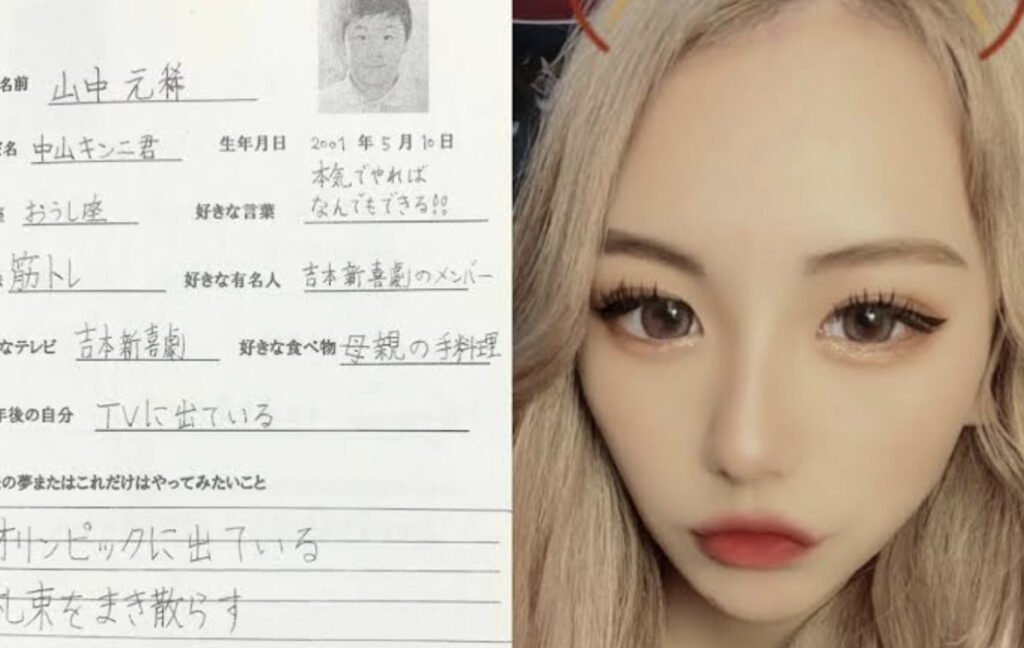 名前 山中 元稀
名 中山キンニ君 生年月日 2001年5月10日
座 おうし座 好きな言葉 本気でやれば
なんでもできる!!
筋トレ 好きな有名人 吉本新喜劇のメンバー
なテレビ 吉本新喜劇 好きな食べ物 母親の手料理
年後の自分 TVに出ている
の夢またはこれだけはやってみたいこと
オリンピックに出ている
札束をまき散らす